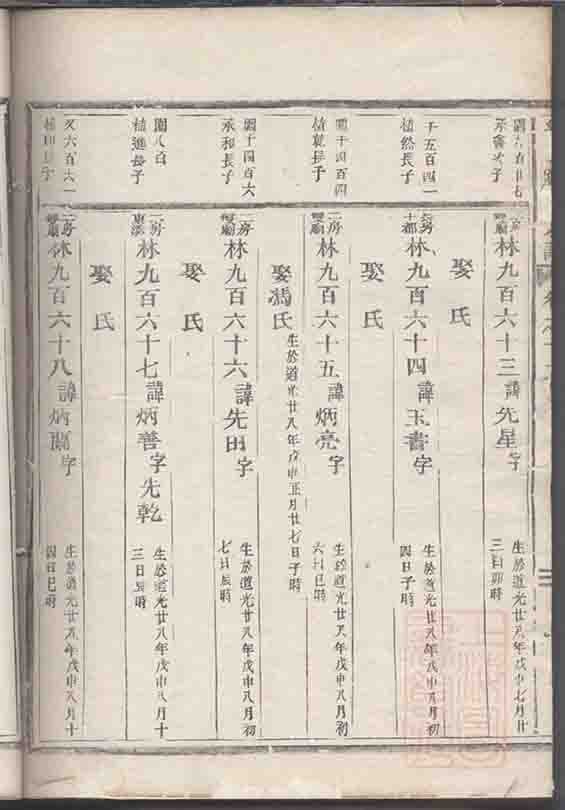 園六百廿七
承會次子
房
雙廟
林九百六十三諱先星字
生於道光廿八年戊申七月廿
三日卯時
娶氏
千五百四一
植然長子
長房
十都
林九百六十四諱玉書字
生於道光廿八年戊申八月初
四日子時
娶氏
園十四百四
植範長子
二房
雙廟
林九百六十五諱炳亮字
生於道光廿八年戊申八月初
六日巳時
娶馮氏
生於道光廿八年戊申正月廿七日子時
園十四百六
承和長子
二房
雙廟
林九百六十六諱先田字
生於道光廿八年戊申八月初
七日辰時
娶氏
園八百
植進長子
二房
東溪
林九百六十七諱炳善字先乾
生於道光廿八年戊申八月十
三日辰時
娶氏
文六百六一
長子
二房
雙廟
林九百六十八諱炳字
生於道光廿八年戊申八月十
四日巳時